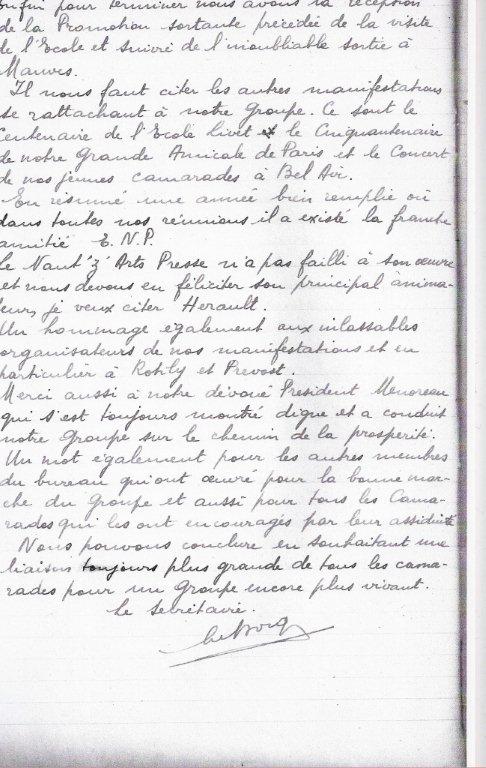 Enfin pour terminer nous avons la réception
de la Promotion sortante précédée de la visite
de l'Ecole et suivie de l'inoubliable sortie à
Mauves.
Il nous faut citer les autres manifestations
se rattachant à notre Groupe. Ce sont le
Centenaire de l'Ecole Livet et le Cinquantenaire
de notre Grande Amicale de Paris et le Concert
de nos jeunes camarades à Bel Air.
En résumé une année bien remplie où
dans toutes nos réunions il a existé la franche
amitié E.N.P.
Le Naut'z'Arts Presse n'a pas failli à son œuvre
et nous devons en féliciter son principal anima-
teur, je veux citer Herault.
Un hommage également aux inlassables
organisateurs de nos manifestations et en
particulier à Rotily et Prevost.
Merci aussi à notre dévoué President Menoreau
qui s'est toujours montré digne et a conduit
notre Groupe sur le chemin de la prosperité.
Un mot également pour les autres membres
du bureau qui ont œuvré pour la bonne mar-
che du Groupe et aussi pour tous les Cama-
rades qui les ont encouragés par leur assiduité
Nous pouvons conclure en souhaitant une
liaison toujours plus grande de tous les cama-
rades pour un Groupe encore plus vivant.
Le Secrétaire.